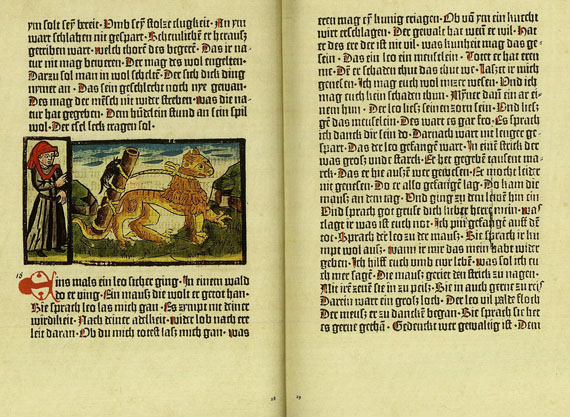 ym solt sey breit· Vmb sey stolze clugheit· An ym
wart schlahen nit gespart· Schentlichē er herausz
getriben wart· welch thorē des begerē· Das ir na⸗
tur nit mag beweren· Der mag des wol engelten·
Darzu sol man in wol scheltē· Der sich dick ding
nymet an· Das sein geschlecht noch nye gewan·
Des mag der mēsch nit wider streben· was die na⸗
tur hat gegeben· Dem hūdelein stund an sein spil
wol· Der esel seck tragen sol·
18
Eins mals ein leo sicher ging· In einem wald
do er ving· Ein mausz die wolt er getot han·
Sie sprach leo las mich gan· Es zympt nit deiner
wirdikeit· Nach deiner adelheit· wider lob nach ere
leit daran· Ob du mich totest lasz mich gan· was
28
eren mag eɥ kunig eriagen· Ob vō ym ein knecht
wirt erschlagen· Der gewalt hat wenī er wil· Hat
er des ere der ist nit vil· was kunheit mag das ge⸗
sein· Das ein leo ein meuselein· Totet er hat eren
nit· Dem er schaden thut das thut we· Laszet ir mich
genesen· Ich mag euch wol nutzer wesen· Vnd ich
mag euch klein schaden thun·
nem hun· Der leo liesz seinen zorn sein· Vnd liesz
gēn das meuselein· Des wart es gar fro· Es sprach
ich danck die sein do· Darnach wart nit lenger ge⸗
spart· Das der leo gefangē wart· In einē strick der
was grosz vnd starck· Er het gegebē tausent marck·
Das er hie ausz wer gewesen· Er mocht leider
nit genesen· Do er also gefangē lag· Do kam die
mausz an dem tag· Vnd ging zu dem leuen hin ein
Vnd sprach got grusz dich lieber herre mein· was
clagt ir was ist euch not· Ich pin gefangē auff dē
tot· Sprach der leo zu der mausz· Sie sprach ir ku
mpt wol ausz· wann ir mir das mein habt wider
geben· Ich hilff euch vmb ewr lebē· was sol ich eu
ch mer sagē· Die mausz geriet den strick zu nagen·
Mit irē zenē sie in zu peisz· Sie in auch
Darein wart ein grosz loch· Der leo vil palde floch
Der mausz er zu danckē began· Sie sprach sit her
es gerne gethā· Gedenckt wer gewaltig ist· Dem
29